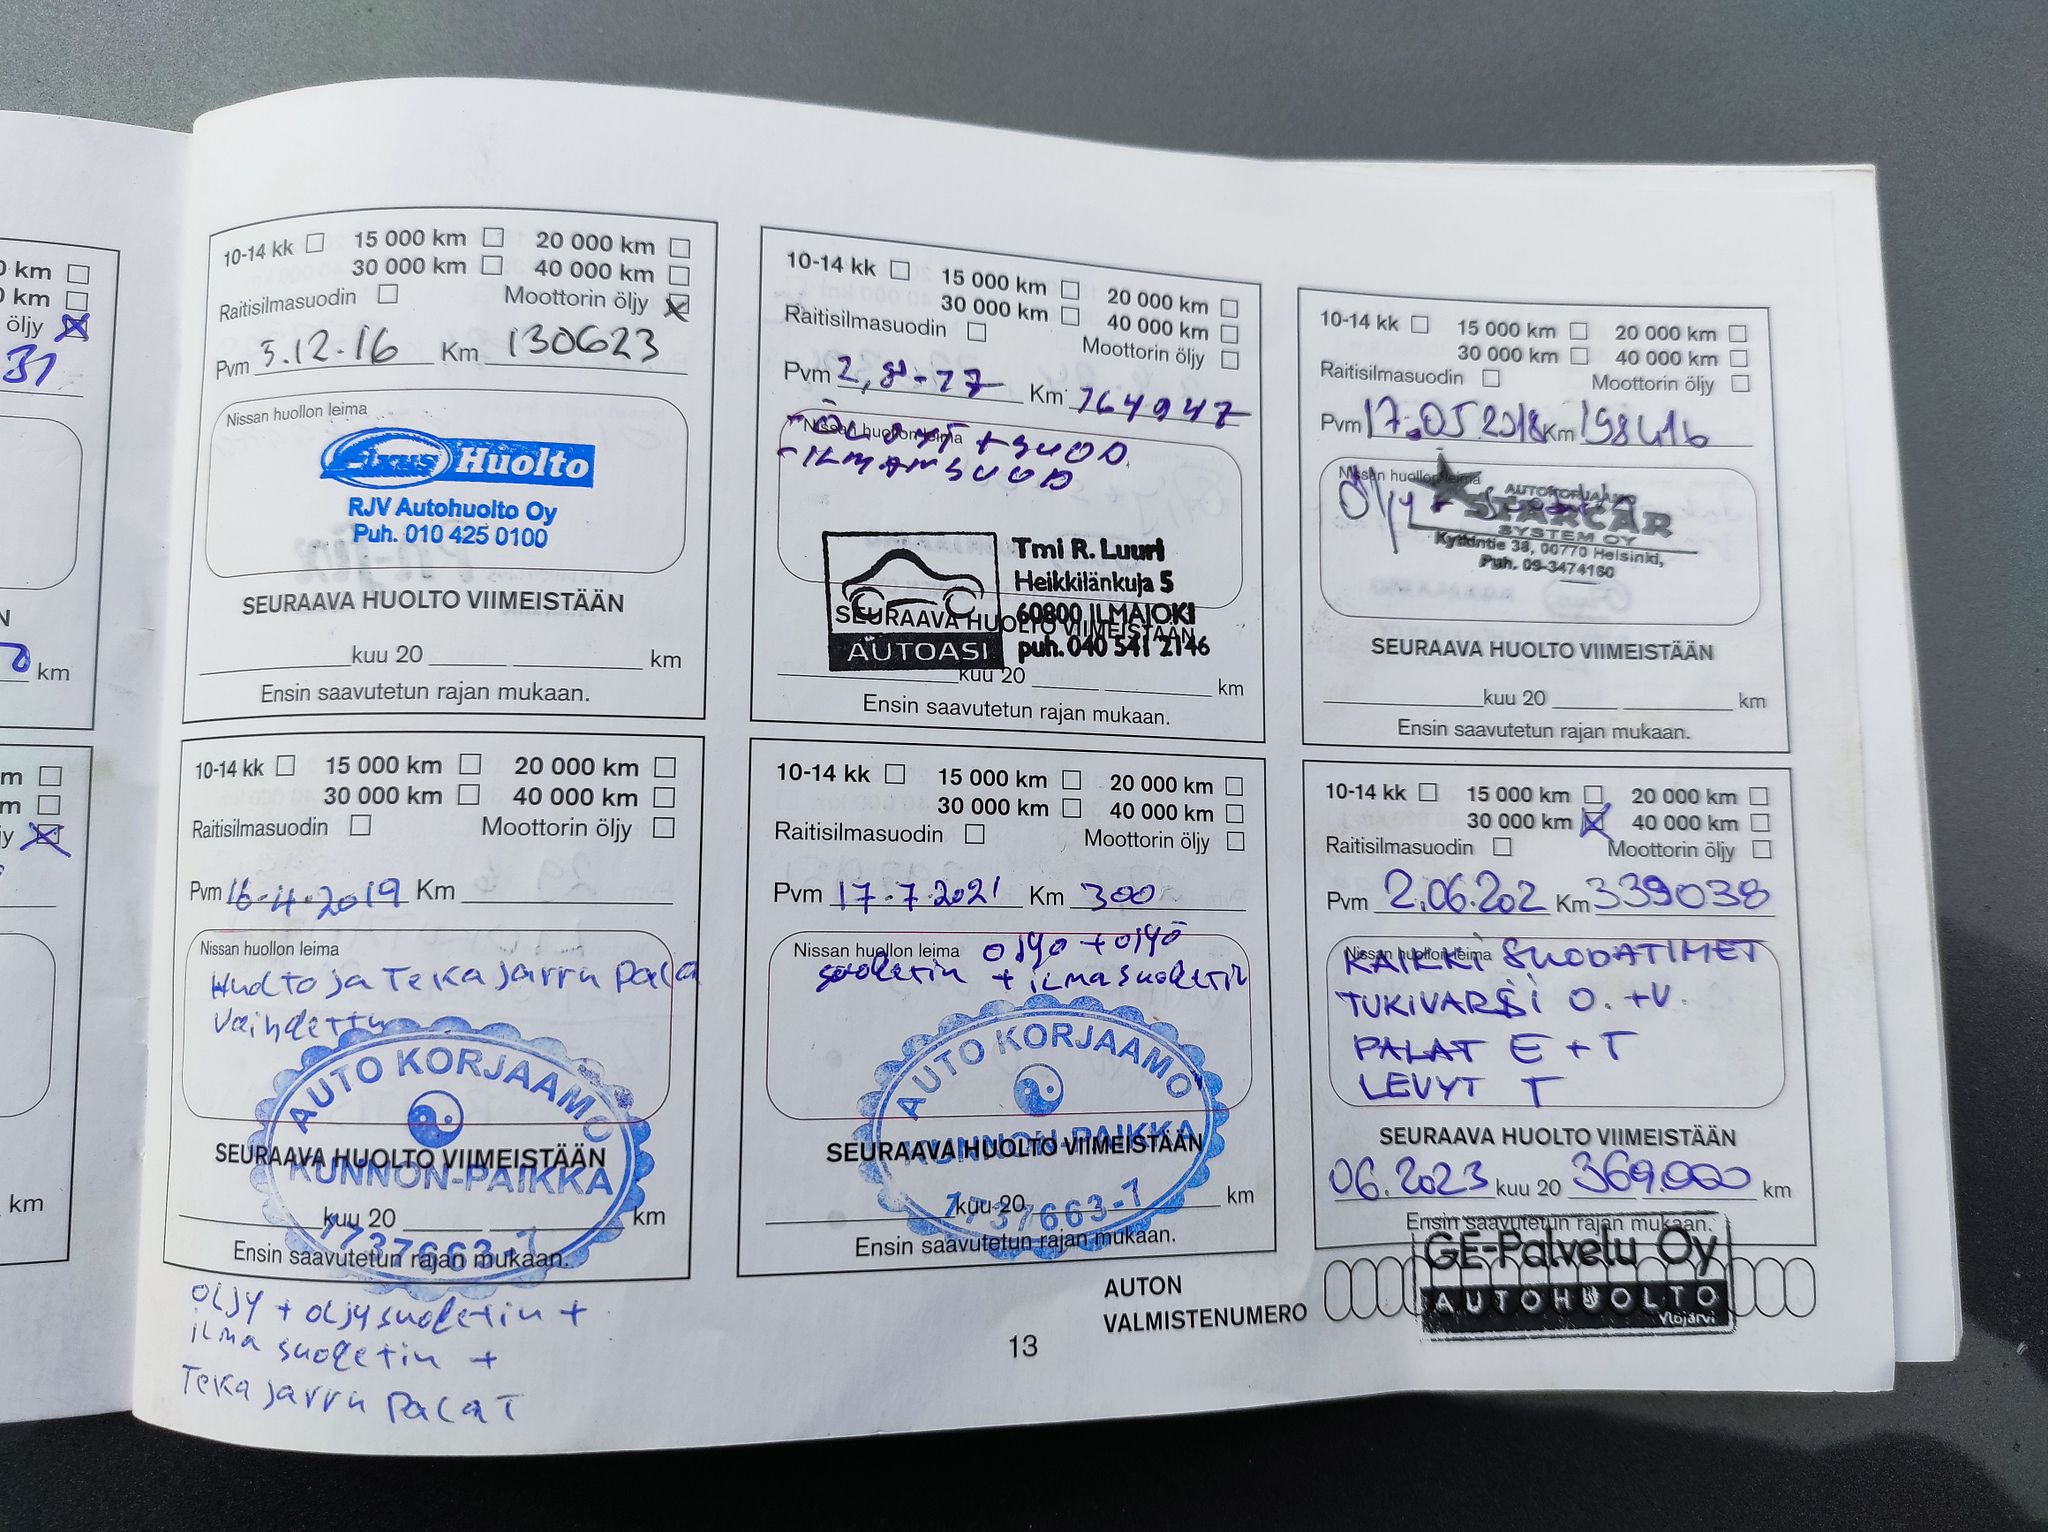 0 km
0 km
öljy
31
km
10-14 kk 15 000 km 20 000 km
30 000 km 40 000 km
Raitisilmasuodin Moottorin öljy
Pvm 5.12.16 Km 130623
Nissan huollon leima
Fixus Huolto
RJV Autohuolto Oy
Puh. 010 425 0100
SEURAAVA HUOLTO VIIMEISTÄÄN
kuu 20 km
Ensin saavutetun rajan mukaan.
10-14 kk 15 000 km 20 000 km
30 000 km 40 000 km
Raitisilmasuodin Moottorin öljy
Pvm 2,8-17 Km 164947
Nissan huollon leima
-ÖLJYT+SUOD.
-ILMANSUOD
Tmi R. Luuri
Heikkilänkuja 5
60800 ILMAJOKI
puh. 040 541 2146
AUTOASI
SEURAAVA HUOLTO VIIMEISTÄÄN
kuu 20 km
Ensin saavutetun rajan mukaan.
10-14 kk 15 000 km 20 000 km
30 000 km 40 000 km
Raitisilmasuodin Moottorin öljy
Pvm 17.05.2018 Km 198416
Nissan huollon leima
Öljy +
AUTOKORJAAMO
STARCAR
SYSTEM OY
Kytkintie 38, 00770 Helsinki,
Puh. 09-3474160
SEURAAVA HUOLTO VIIMEISTÄÄN
kuu 20 km
Ensin saavutetun rajan mukaan.
m
m
km
10-14 kk 15 000 km 20 000 km
30 000 km 40 000 km
Raitisilmasuodin Moottorin öljy
Pvm 16.4.2019 Km
Nissan huollon leima
Huolto ja Teka jarru Pala
Vaihdettu
AUTO KORJAAMO
KUNNON-PAIKKA
1737663-7
SEURAAVA HUOLTO VIIMEISTÄÄN
kuu 20 km
Ensin saavutetun rajan mukaan.
OLJY + OLJYsuodetin +
ilma suodetin +
Teka jarru PalaT
10-14 kk 15 000 km 20 000 km
30 000 km 40 000 km
Raitisilmasuodin Moottorin öljy
Pvm 17.7.2021 Km 300
Nissan huollon leima
oljyö + oljyö
suodetin + ilmasuodetin
AUTO KORJAAMO
KUNNON-PAIKKA
1737663-7
SEURAAVA HUOLTO VIIMEISTÄÄN
kuu 20 km
Ensin saavutetun rajan mukaan.
10-14 kk 15 000 km 20 000 km
30 000 km 40 000 km
Raitisilmasuodin Moottorin öljy
Pvm 2.06.202 Km 339038
Nissan huollon leima
KAIKKI SUODATIMET
TUKIVARSI O. +V.
PALAT E + T
LEVYT T
SEURAAVA HUOLTO VIIMEISTÄÄN
06.2023 kuu 20 369.000 km
Ensin saavutetun rajan mukaan.
GE-Palvelu Oy
AUTOHUOLTO
Ylöjärvi
AUTON
VALMISTENUMERO
13